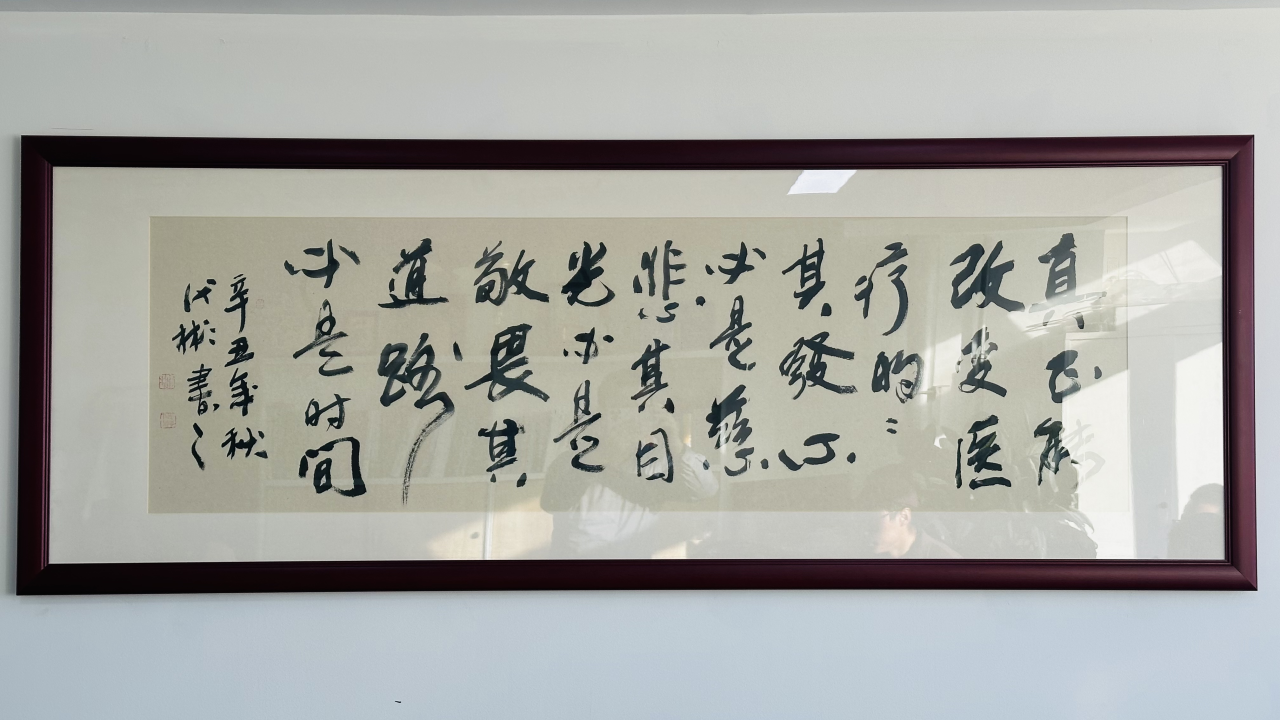 真正能
改变医
疗的：
其發心
必是慈
悲其目
光必是
敬畏其
道路
必是时间
辛丑年秋
彬書之